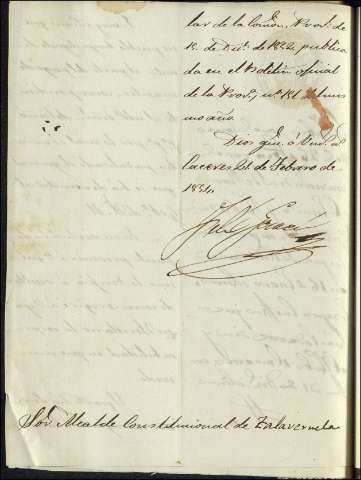 lar de la Comon. Prov. de
de Dic. de 1882 publica
da en el Boletin oficial
de la Prov. nº 181 del mis
mo año
Dios gue. á Vm. as.
Caceres 21 de Febrero de
1884
Sor. Alcalde Constitucional de Talaveruela